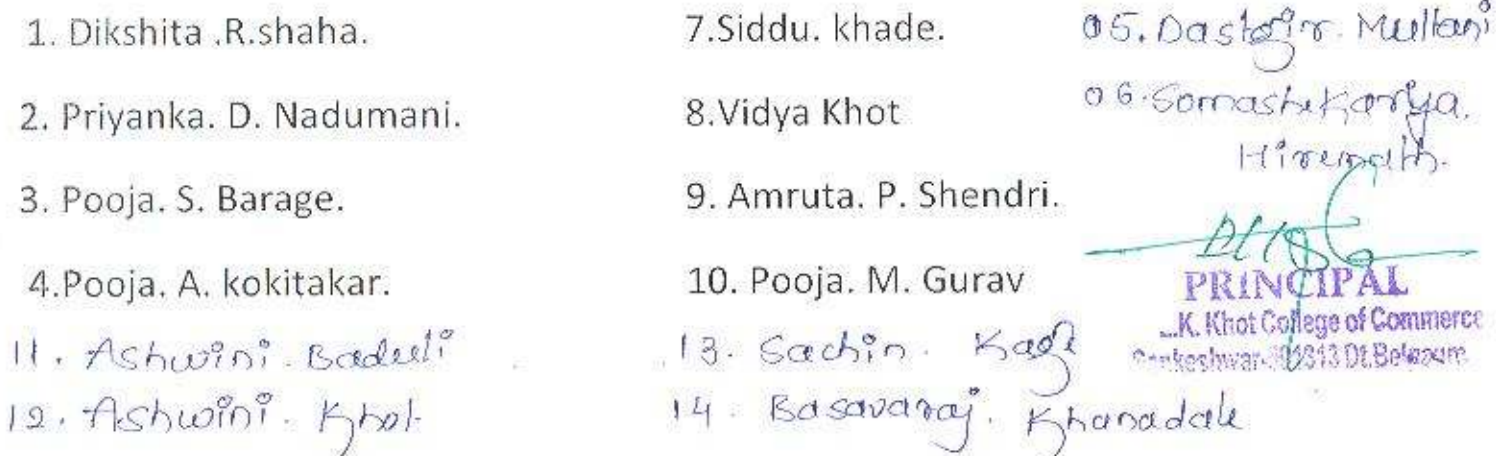 1. Dikshita .R.shaha.
2. Priyanka. D. Nadumani.
3. Pooja. S. Barage.
4.Pooja. A. kokitakar.
11. Ashwini. Baduli
12. Ashwini. Khot
7.Siddu. khade.
8.Vidya Khot
9. Amruta. P. Shendri.
10. Pooja. M. Gurav
13. Sachin. Kage
14. Basavaraj. Khanadale
05. Dastgir. Mullani
06. Somashekarya.
Hiremath.
PRINCIPAL
K. Khot College of Commerce
Dt.Belgaum